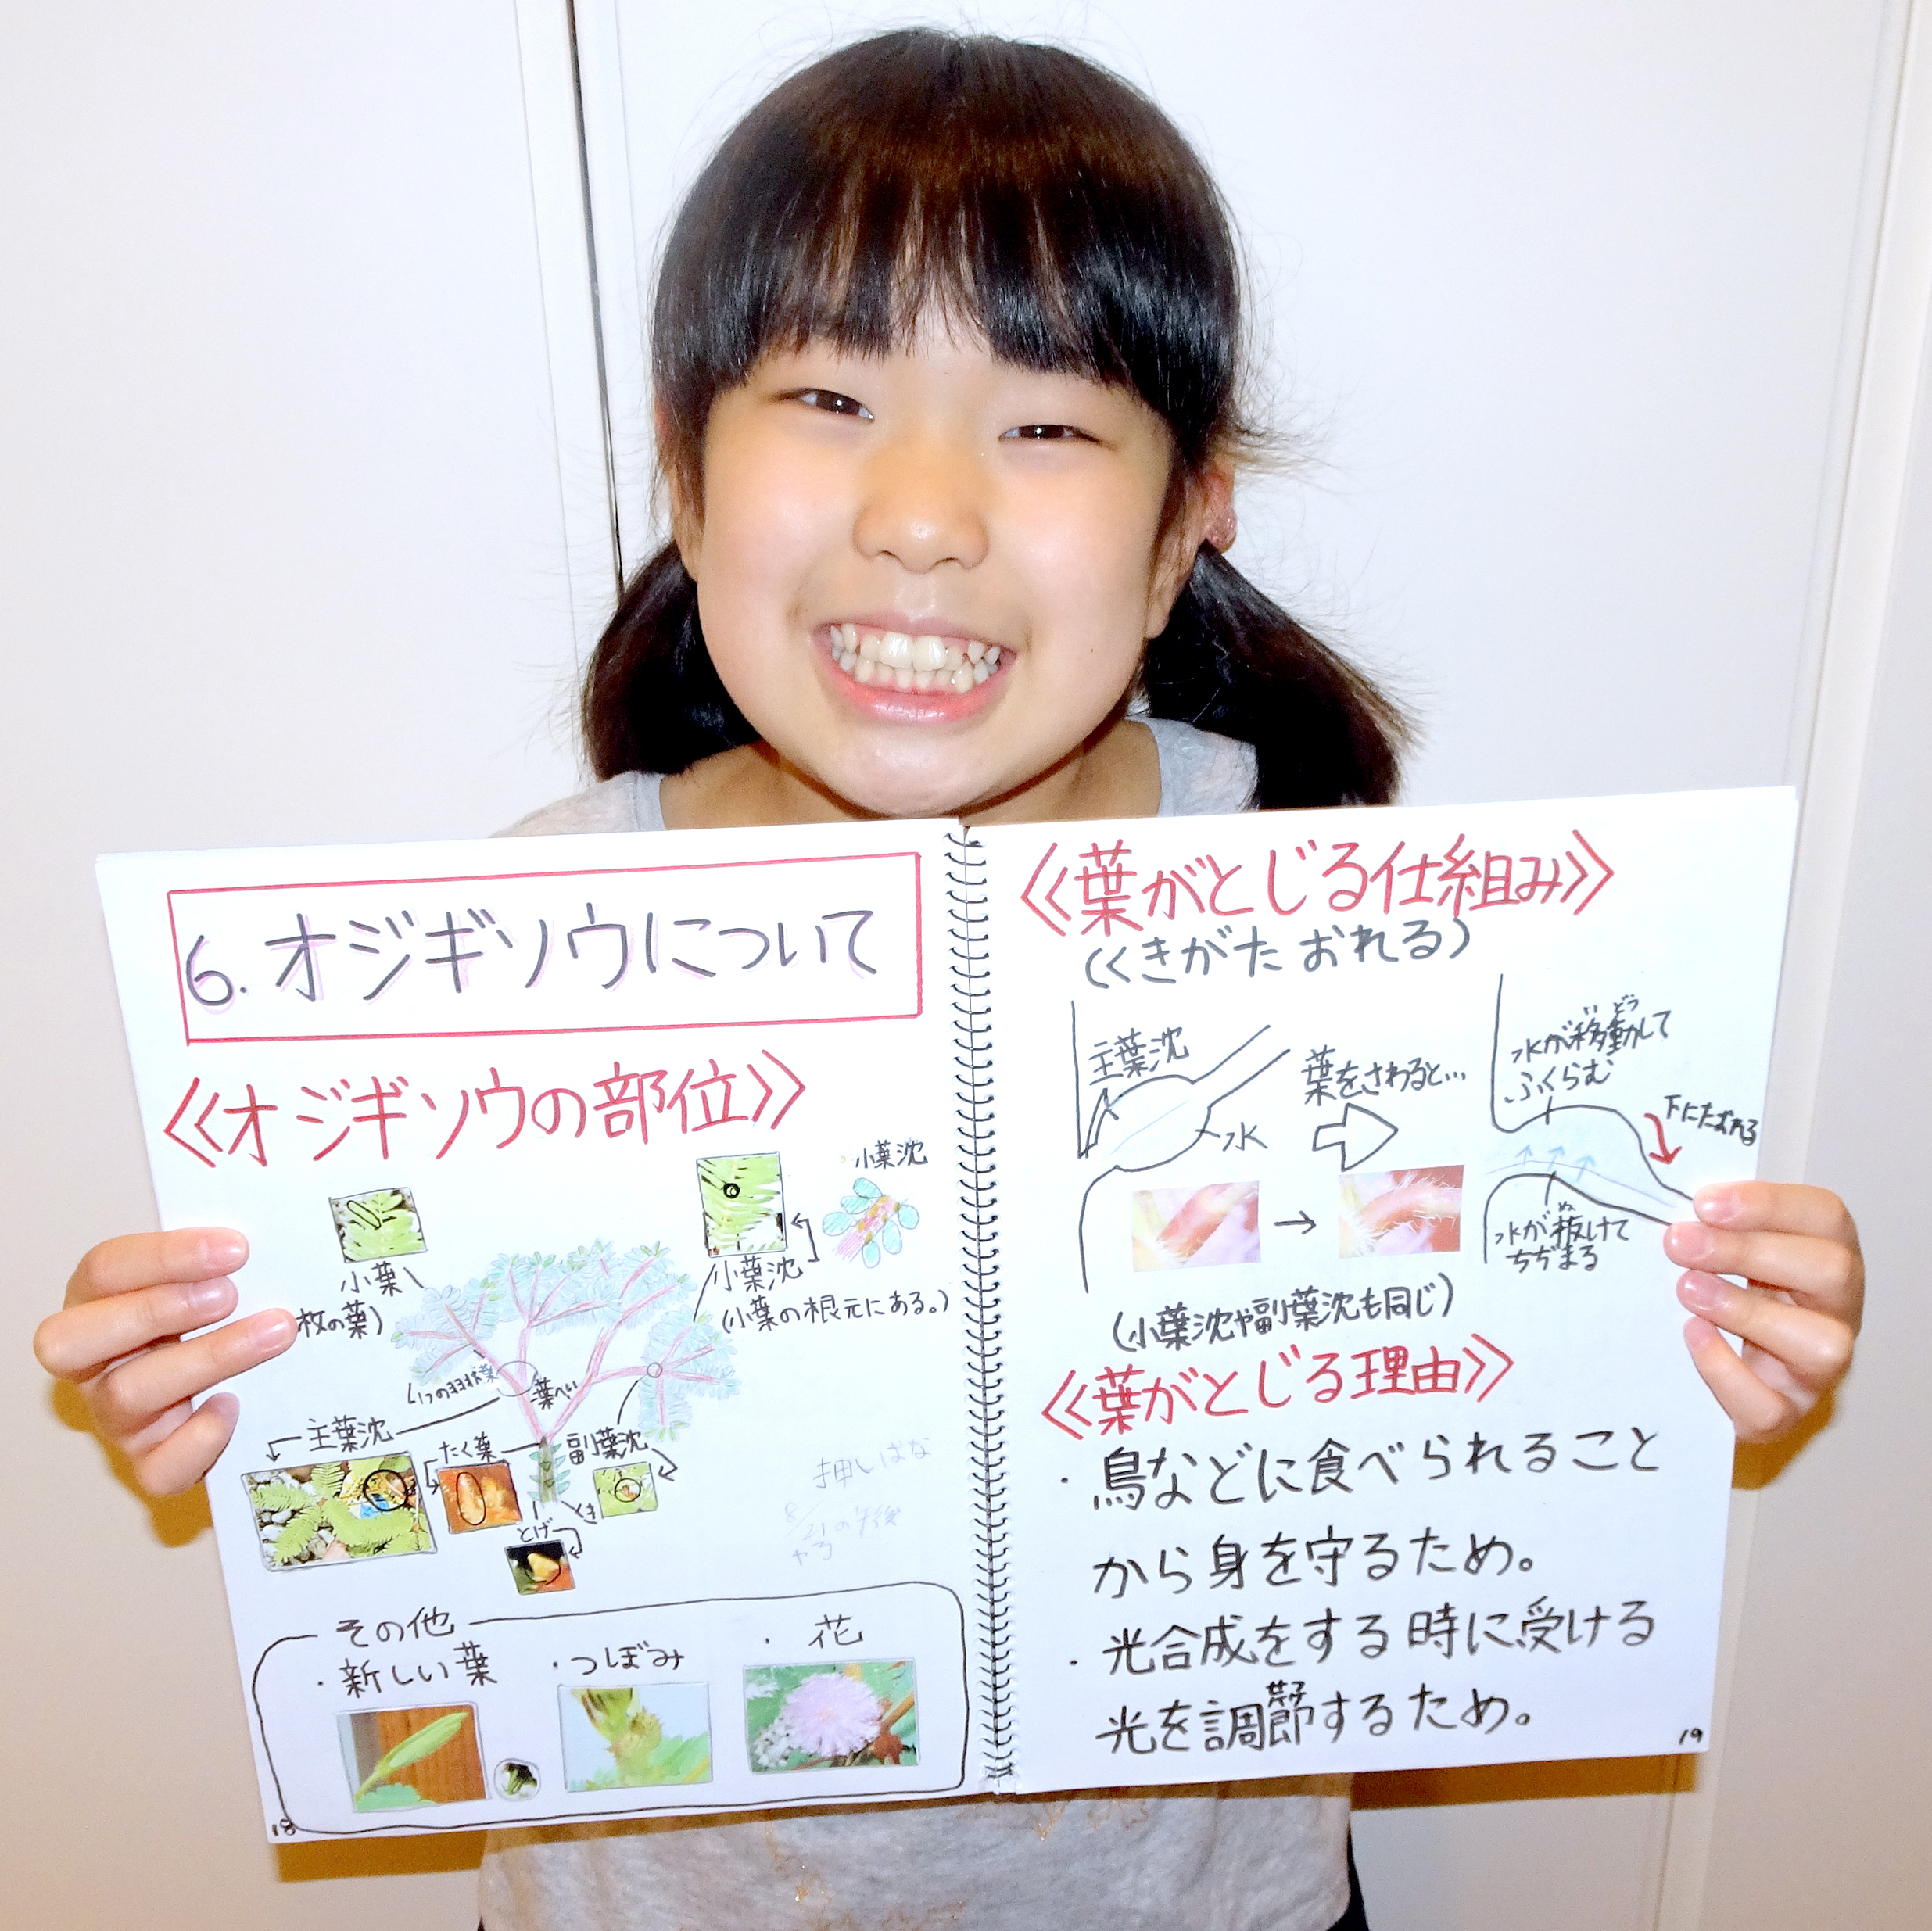 6.オジギソウについて
《オジギソウの部位》
小葉
枚の葉)
小葉沈
小葉沈
(小葉の根元にある。)
葉へい
主葉沈
たく葉
副葉沈
とげ
くき
押しばな
8/21の午後
やる
その他
・新しい葉
・つぼみ
・花
18
《葉がとじる仕組み》
(くきがたおれる)
主葉沈
水
葉をさわると…
いどう
水が移動して
ふくらむ
下にたおれる
ぬ
水が抜けて
ちぢまる
(小葉沈や副葉沈も同じ)
《葉がとじる理由》
・鳥などに食べられること
から身を守るため。
・光合成をする時に受ける
光を調節するため。
19